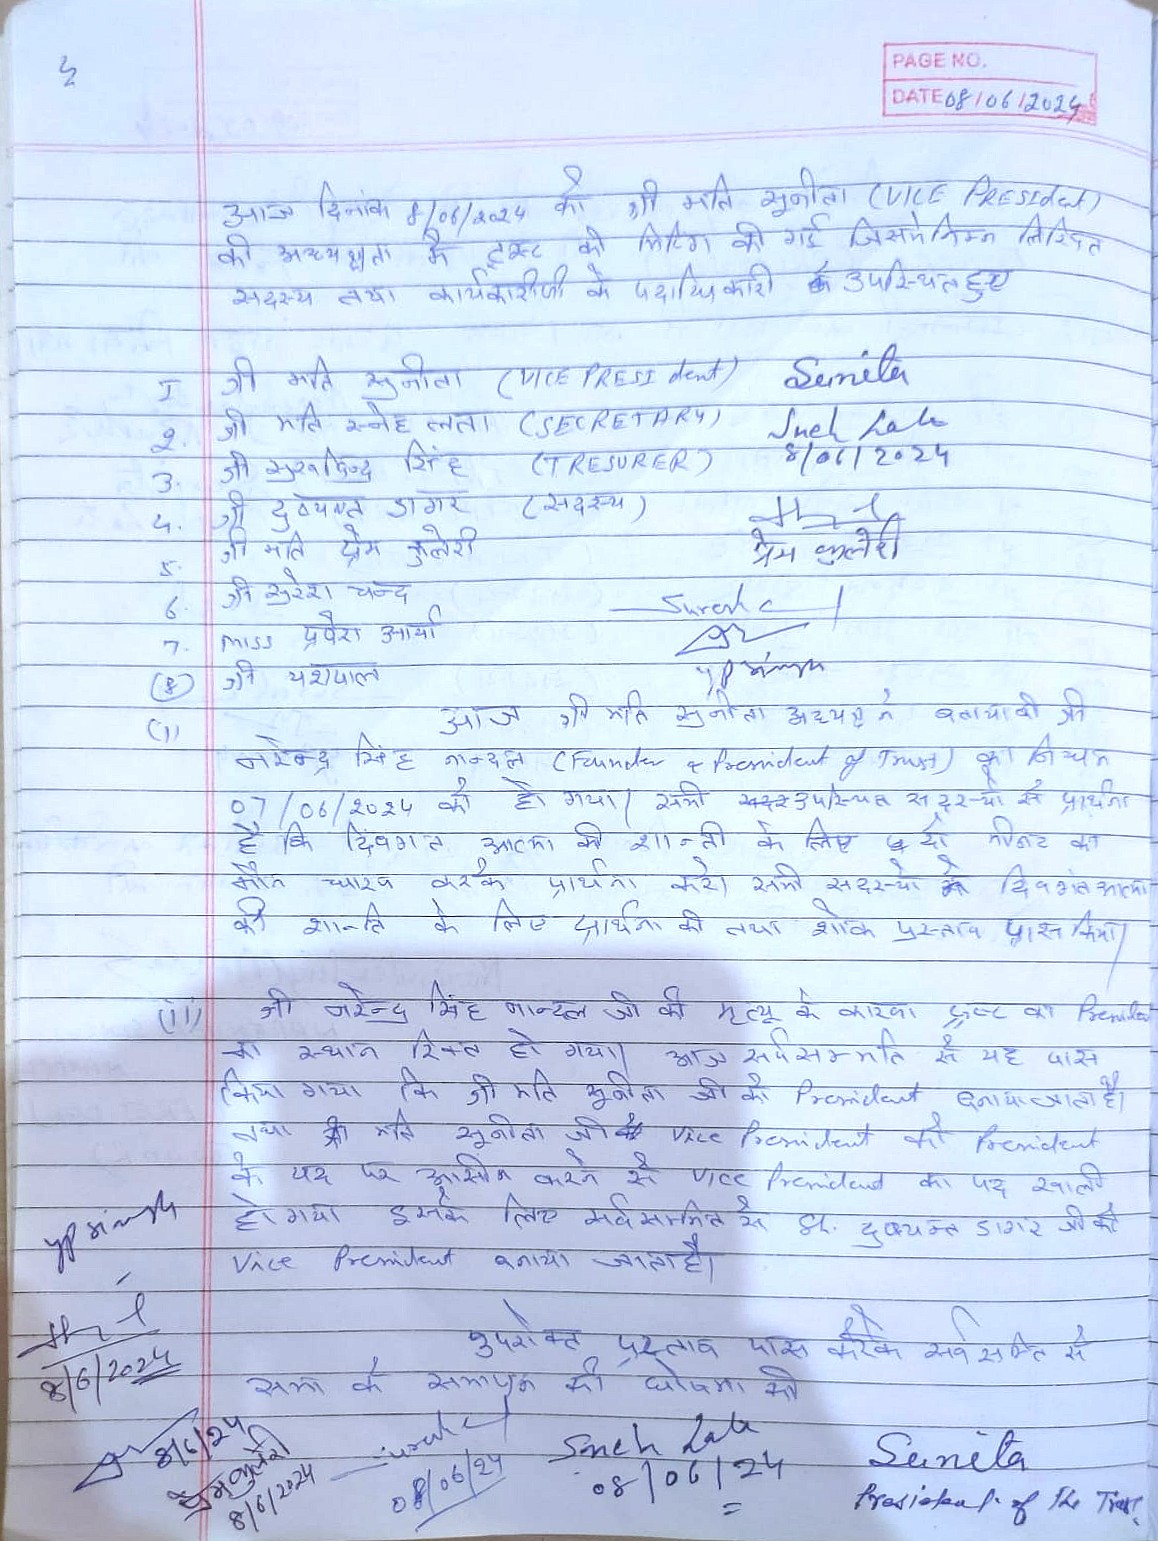 ५
PAGE NO.
DATE 08/06/2024
आज दिनांक 8/06/2024 को श्री मति सुनीता (VICE PRESIdent)
की अध्यक्षता के ट्रस्ट की मिटिंग की गई जिसमे निम्न लिखित
सदस्य तथा कार्यकारीणी के पदाधिकारी उपस्थित हुए
1 श्री मति सुनीता (VICE PRESIdent) Sunita
2. श्री मति स्नेह लता (SECRETARY) Sneh Lata
3. श्री सुखविन्द्र सिंह (TRESURER) 8/06/2024
4. श्री दुष्यन्त डागर (सदस्य)
5. श्री मति प्रेम कुलेरी प्रेम कुलेरी
6. श्री सुरेश चन्द Suresh C
7. miss आर्या
(8) श्री यशपाल yp singh
(1) आज श्री मति सुनीता अध्यक्ष ने बताया की श्री
नरेन्द्र सिंह नान्दल (Founder & President of Trust) का निधन
07/06/2024 को हो गया। सभी उपस्थित सदस्यो से प्रार्थना
है कि दिवंगत आत्मा की शान्ती के लिए दो मीनट का
मौन धारण करके प्रार्थना करे। सभी सदस्यो ने दिवगंत आत्मा
की शान्ति के लिए प्रार्थना की तथा शोक प्रस्ताव पास किया।
(11) श्री नरेन्द्र सिंह नान्दल जी की मृत्यू के कारण ट्रस्ट का President
का स्थान रिक्त हो गया। आज सर्वसम्मति से यह पास
किया गया कि श्री मति सुनीता जी को President बनाया जाता है।
तथा श्री मति सुनीता जी Vice President को President
के पद पर आसीन करने से Vice President का पद खाली
हो गया इसके लिए सर्वसम्मति से Sh. दुष्यन्त डागर जी को
Vice President बनाया जाता है।
yp singh
उपरोक्त प्रस्ताव पास करके सर्वसमति से
8/6/2024
सभा के समापन की घोषणा की
8/6/24
प्रेम कुलेरी
8/6/2024
Suresh C
08/06/24
Sneh Lata
08/06/24
Sunita
President of The Trust.